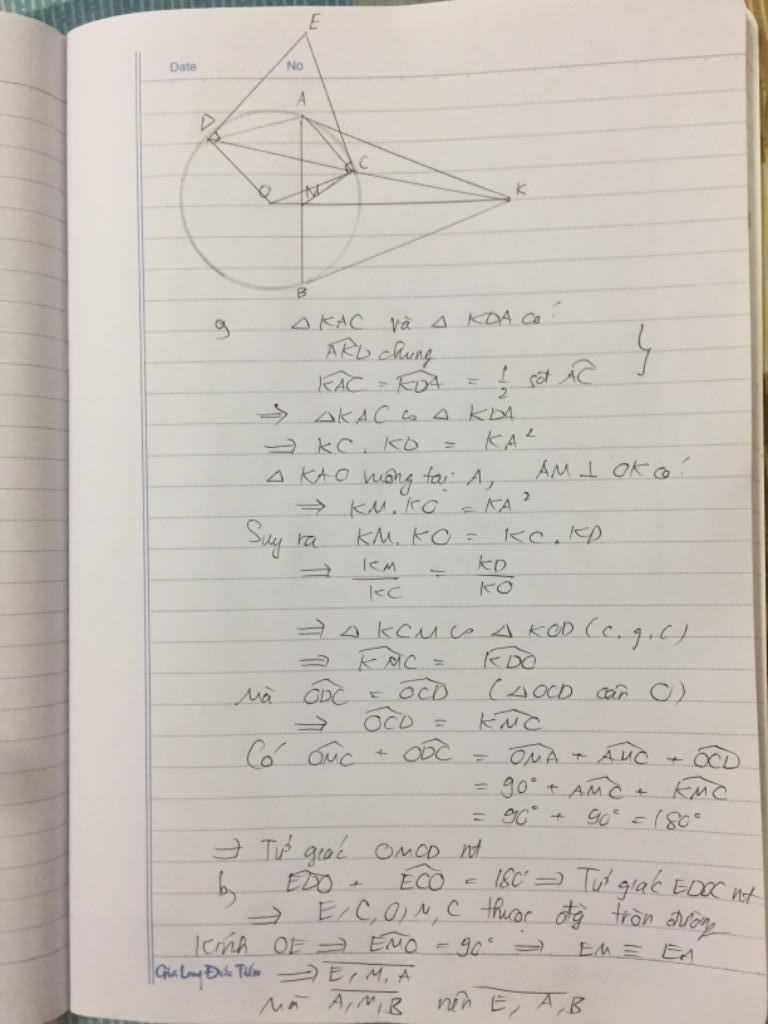 E
Date
No
A
D
C
O
M
K
B
a, △KAC và △ KDA có
AKD chung
KAC = KDA = 1/2 sđ AC
⇒ △KAC ∽ △ KDA
⇒ KC . KD = KA²
△ KAO vuông tại A, AM ⊥ OK có
⇒ KM. KO = KA²
Suy ra KM. KO = KC . KD
⇒ KM/KC = KD/KO
⇒ △ KCM ∽ △ KOD (c.g.c)
⇒ KMC = KDO
Mà ODC = OCD (△OCD cân O)
⇒ OCD = KMC
Có OMC + ODC = OMA + AMC + OCD
= 90° + AMC + KMC
= 90° + 90° = 180°
⇒ Tứ giác OMCD nt
b, EDO + ECO = 180° ⇒ Tứ giác EDOC nt
⇒ E, C, O, M, C thuộc đg tròn đường
kính OE ⇒ EMO = 90° ⇒ EM ≡ EA
Gia Long Đức Tiến ⇒ E, M, A
Mà A, M, B nên E, A, B